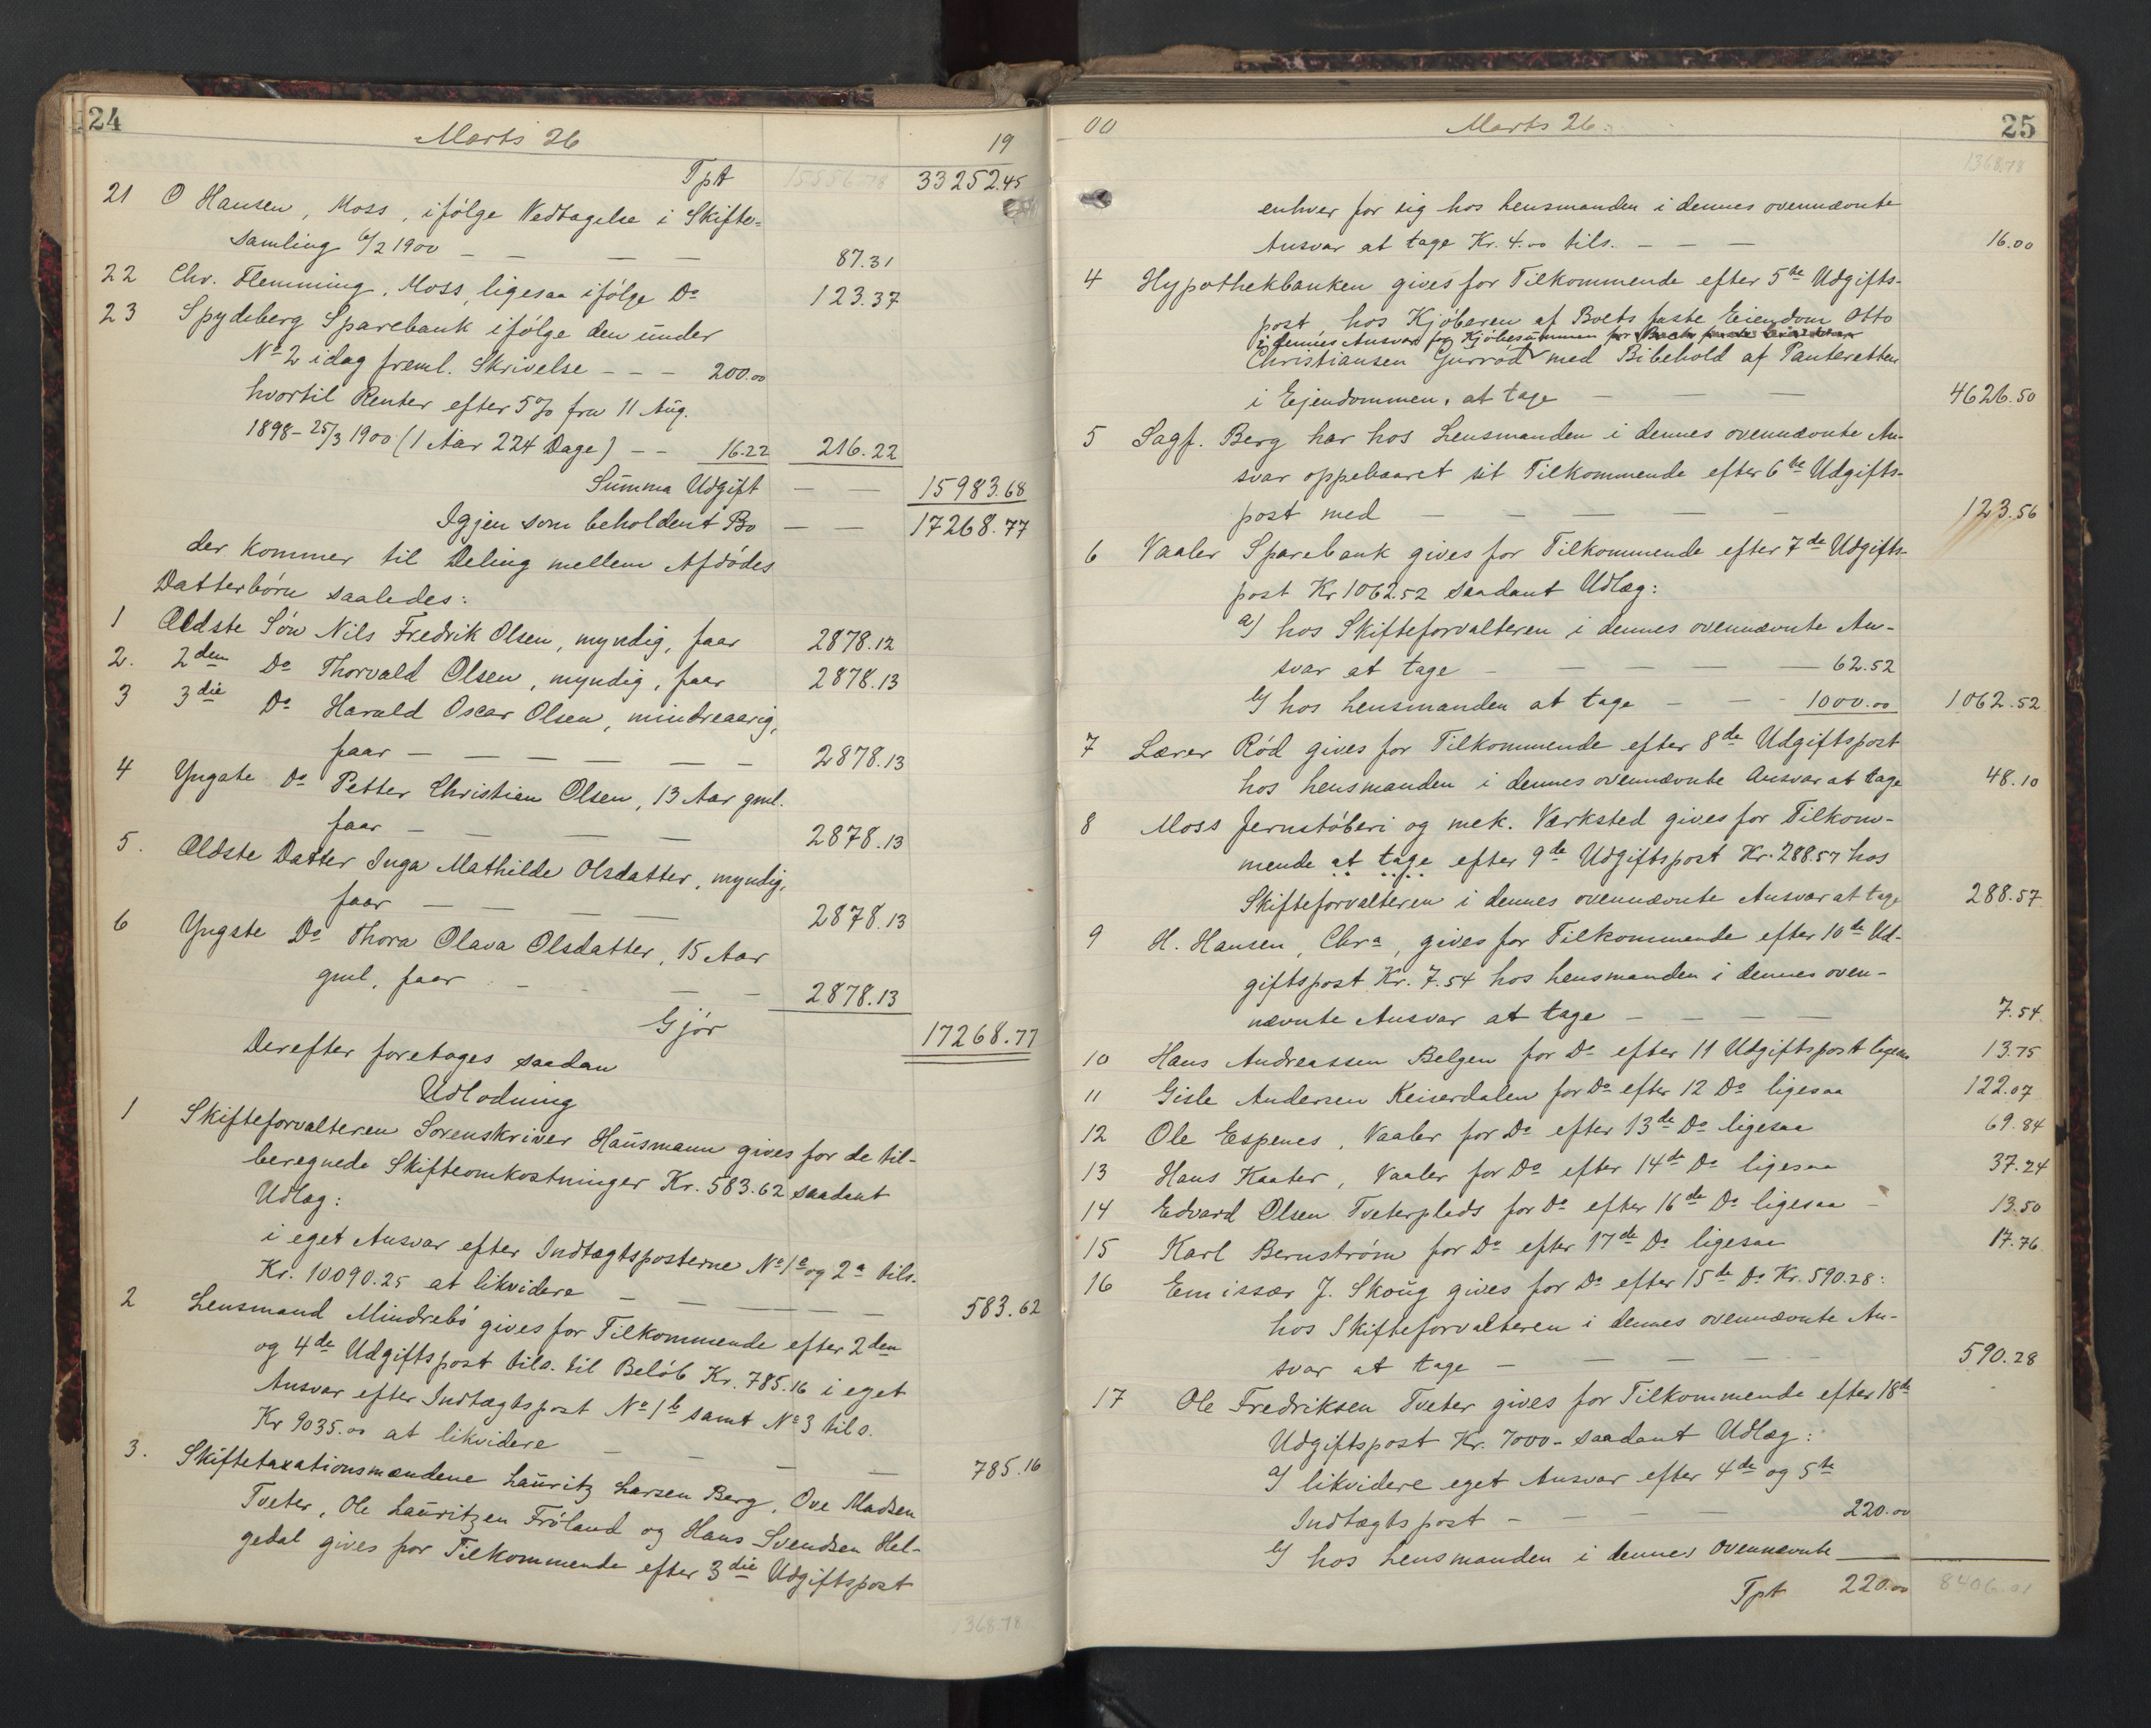 24
Marts 26
19
Tpt 15556.78 33252.45
21 O Hansen, Moss, ifølge Vedtagelse i Skifte-
samling 6/2 1900 — — — — 87.31
22 Chr. Flemming, Moss, ligesaa ifølge Do 123.37
23 Spydeberg Sparebank ifølge den under
No 2 idag freml. Skrivelse — — — 200.00
hvortil Renter efter 5% fra 11 Aug.
1898 – 25/3 1900 (1 Aar 224 Dage) — — 16.22 216.22
Summa Udgift — — 15983.68
Igjen som beholdent Bo — — 17268.77
der kommer til Deling mellem Afdødes
Datterbørn saaledes:
1 Ældste Søn Nils Fredrik Olsen, myndig, faar 2878.12
2. 2den Do Thorvald Olsen, myndig, faar 2878.13
3 3die Do Harald Oscar Olsen, mindreaarig,
faar — — — — — — 2878.13
4 Yngste Do Petter Christian Olsen, 13 Aar gml.
faar — — — — 2878.13
5. Ældste Datter Inga Mathilde Olsdatter, myndig,
faar — — — — 2878.13
6 Yngste Do Thora Olava Olsdatter, 15 Aar
gml, faar — — — 2878.13
Gjør 17268.77
Derefter foretages saadan
Udlodning
1 Skifteforvalteren Sorenskriver Hausmann gives for de til-
beregnede Skifteomkostninger Kr. 583.62 saadant
Udlæg:
i eget Ansvar efter Indtægtsposterne No 1a og 2a tils.
Kr. 10090.25 at likvidere — — — — — 583.62
2 Lensmand Mindrebø gives for Tilkommende efter 2den
og 4de Udgiftspost tils. til Beløb Kr. 785.16 i eget
Ansvar efter Indtægtspost No 1b samt No 3 tils.
Kr 9035.00 at likvidere — — — 785.16
3. Skiftetaxationsmændene Lauritz Larsen Berg, Ove Madsen
Tveter, Ole Lauritzen Frøland og Hans Svendsen Hel-
gedal gives for Tilkommende efter 3die Udgiftspost
1368.78
00
Marts 26.
25
1368.78
enhver for sig hos Lensmanden i dennes ovennævnte
Ansvar at tage Kr. 4.00 tils. — — — 16.00
4 Hypothekbanken gives for Tilkommende efter 5te Udgifts-
post, hos Kjøberen af Boets faste Eiendom Otto
i dennes Ansvar for Kjøbesummen for Boets faste Eiendom
Christiansen Gurrød med Bibehold af Panteretten
i Ejendommen, at tage — — — 4626.50
5 Sagf. Berg har hos Lensmanden i dennes ovennævnte An-
svar oppebaaret sit Tilkommende efter 6te Udgifts-
post med — — — — — 123.56
6 Vaaler Sparebank gives for Tilkommende efter 7de Udgifts-
post Kr 1062.52 saadant Udlæg:
a) hos Skifteforvalteren i dennes ovennævnte An-
svar at tage — — — — — 62.52
b) hos Lensmanden at tage — — 1000.00 1062.52
7 Lærer Rød gives for Tilkommende efter 8de Udgiftspost
hos Lensmanden i dennes ovennævnte Ansvar at tage 48.10
8 Moss Jernstøberi og mek. Værksted gives for Tilkom-
mende at tage efter 9de Udgiftspost Kr. 288.57 hos
Skifteforvalteren i dennes ovennævnte Ansvar at tage 288.57
9 H. Hansen, Chra, gives for Tilkommende efter 10de Ud-
giftspost Kr. 7.54 hos Lensmanden i dennes oven-
nævnte Ansvar at tage — — — — 7.54
10 Hans Andreassen Belgen for Do efter 11 Udgiftspost ligesaa 13.75
11 Gisle Andersen Keiserdalen for Do efter 12 Do ligesaa 122.07
12 Ole Espenes, Vaaler for Do efter 13de Do ligesaa 69.84
13 Hans Kaater, Vaaler for Do efter 14de Do ligesaa 37.24
14 Edvard Olsen Tveterplads for Do efter 16de Do ligesaa — 13.50
15 Karl Bernstrøm for Do efter 17de Do ligesaa 17.76
16 Emissær J. Skoug gives for Do efter 15de Do Kr. 590.28:
hos Skifteforvalteren i dennes ovennævnte An-
svar at tage — — — — 590.28
17 Ole Fredriksen Tveter gives for Tilkommende efter 18de
Udgiftspost Kr. 7000- saadant Udlæg:
a) likvidere eget Ansvar efter 4de og 5te
Indtægtspost — — — — 220.00
b) hos Lensmanden i dennes ovennævnte
Tpt 220.00 8406.01